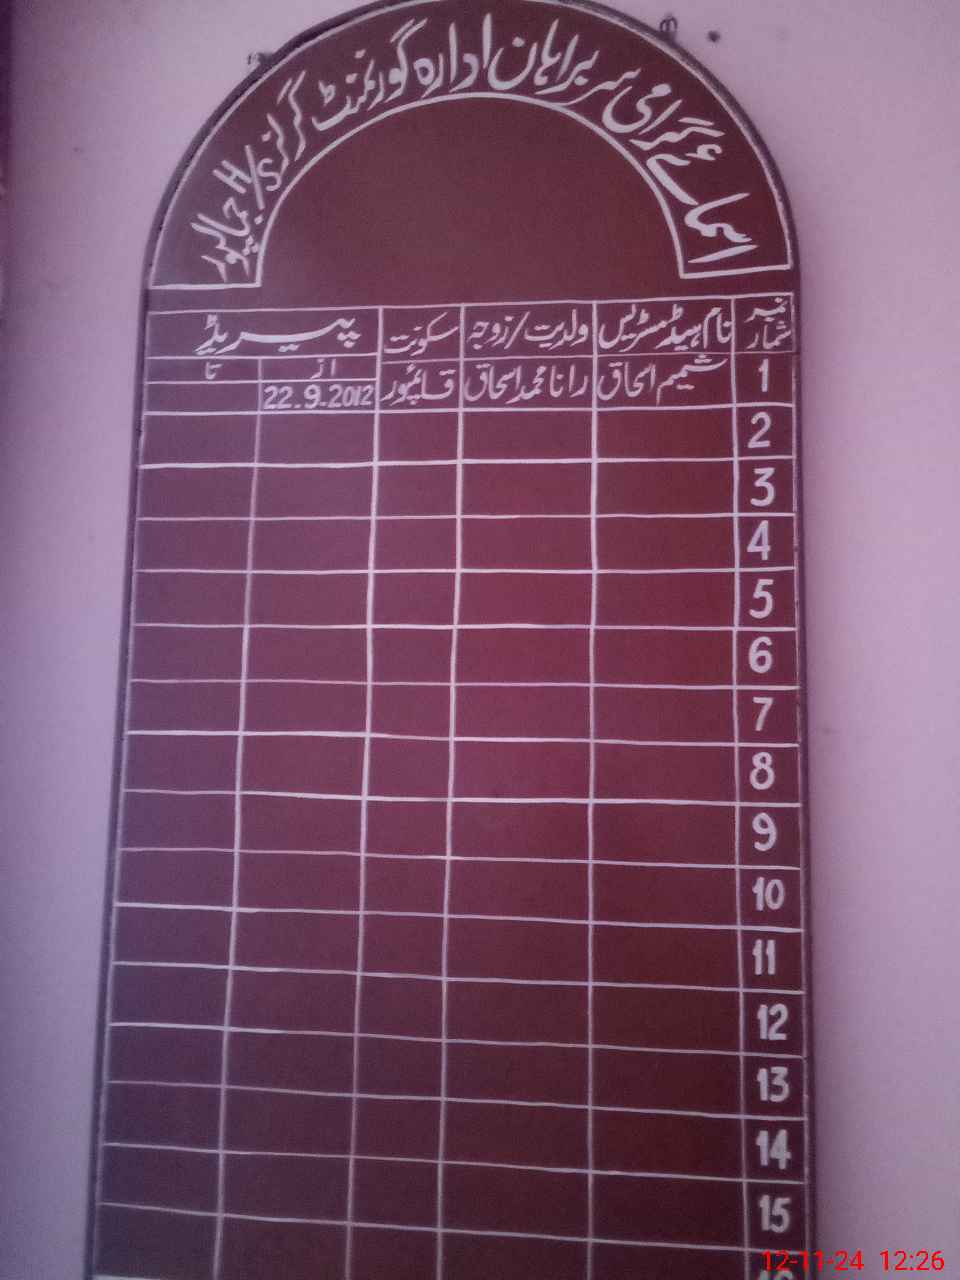 اسمائے گرامی سربراہان ادارہ گورنمنٹ گرلز H/S جمالپور
نمبر شمار نام ہیڈمسٹریس ولدیت/زوجہ سکونت پیریڈ
از تا
1 شمیم اسحاق رانا محمد اسحاق قائمپور 22.9.2012
2
3
4
5
6
7
8
9
10
11
12
13
14
15
12-11-24 12:26